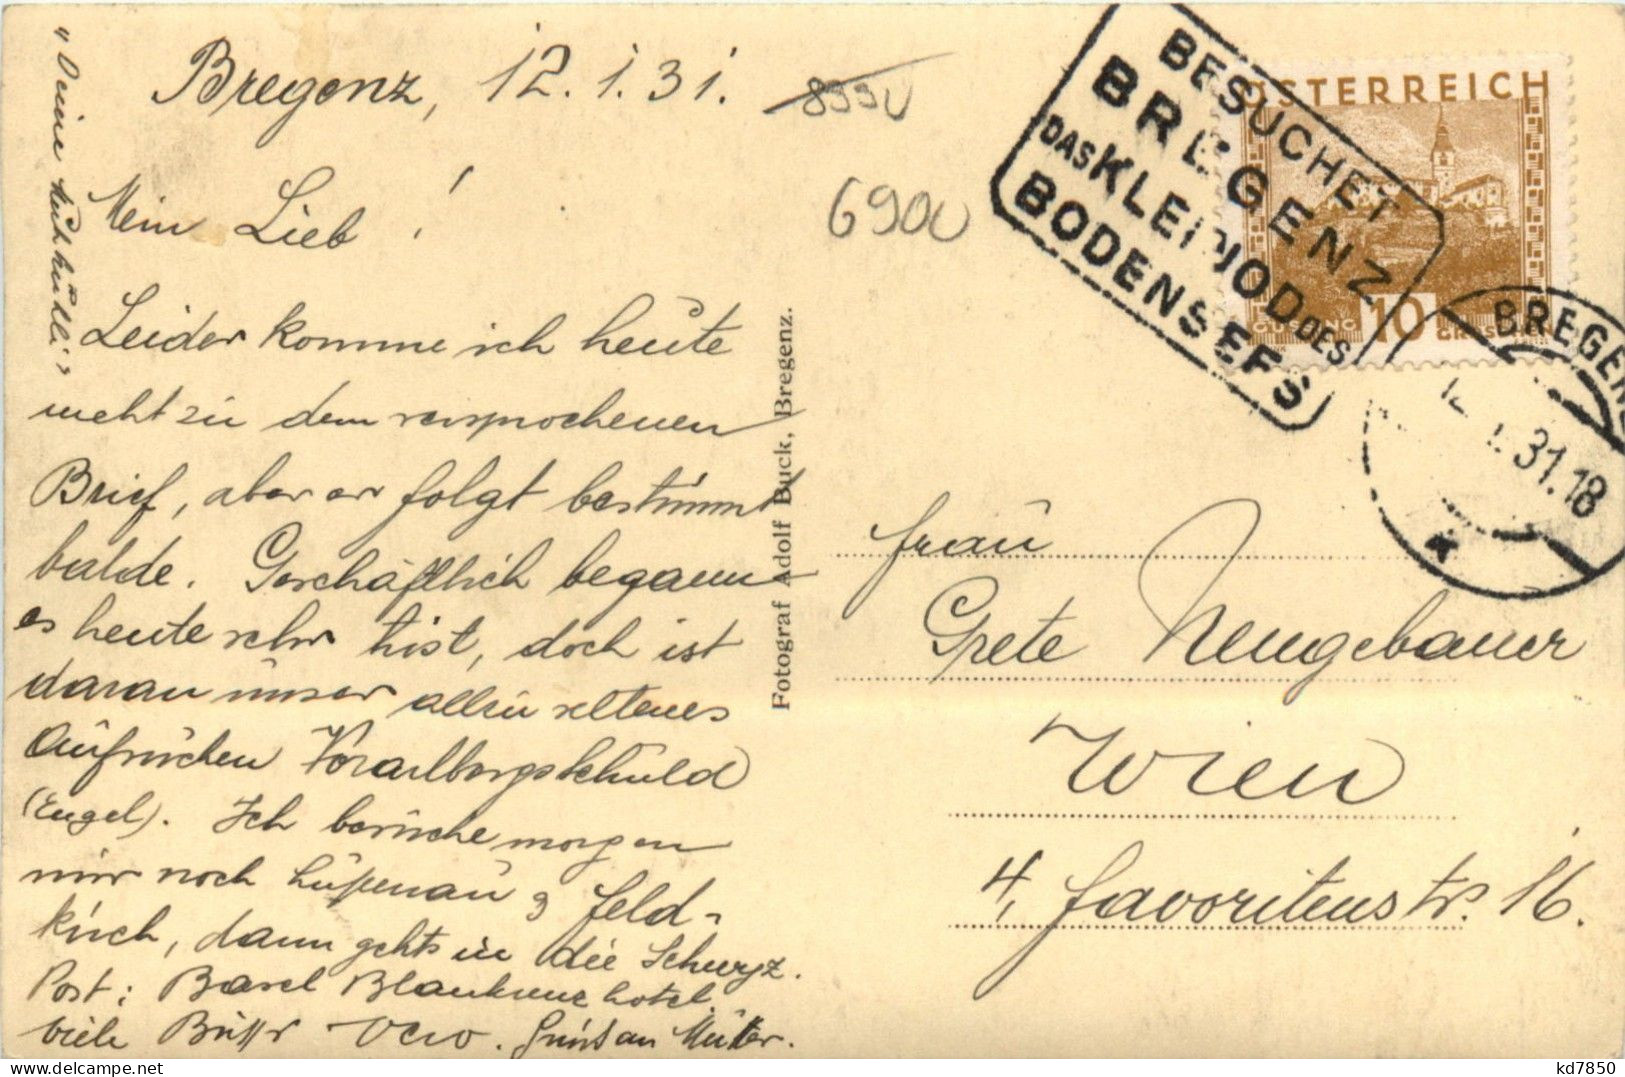 Bregenz, 12.1.31.
8990
6900
Mein Lieb!
Leider komme ich heute
nicht zu dem versprochenen
Brief, aber er folgt bestimmt
balde. Geschäftlich begann
es heute sehr trist, doch ist
daran unser allen seltenes
Vorarlberg schuld
(Engel). Ich besuche morgen
mir noch Lustenau & Feld-
kirch, dann gehts in die Schweiz.
Post: Basel Blaukreuz hotel
viele Bussr Vero. Gruss an Mutter.
"Deine
Fotograf Adolf Buck, Bregenz.
BESUCHET
BREGENZ
DAS KLEINOD DES
BODENSEES
ÖSTERREICH
GÜSSING
10
GROSCHEN
BREGENZ
12.I.31.18
Frau
Grete Neugebauer
Wien
4, Favoritenstr. 16.
kd7850